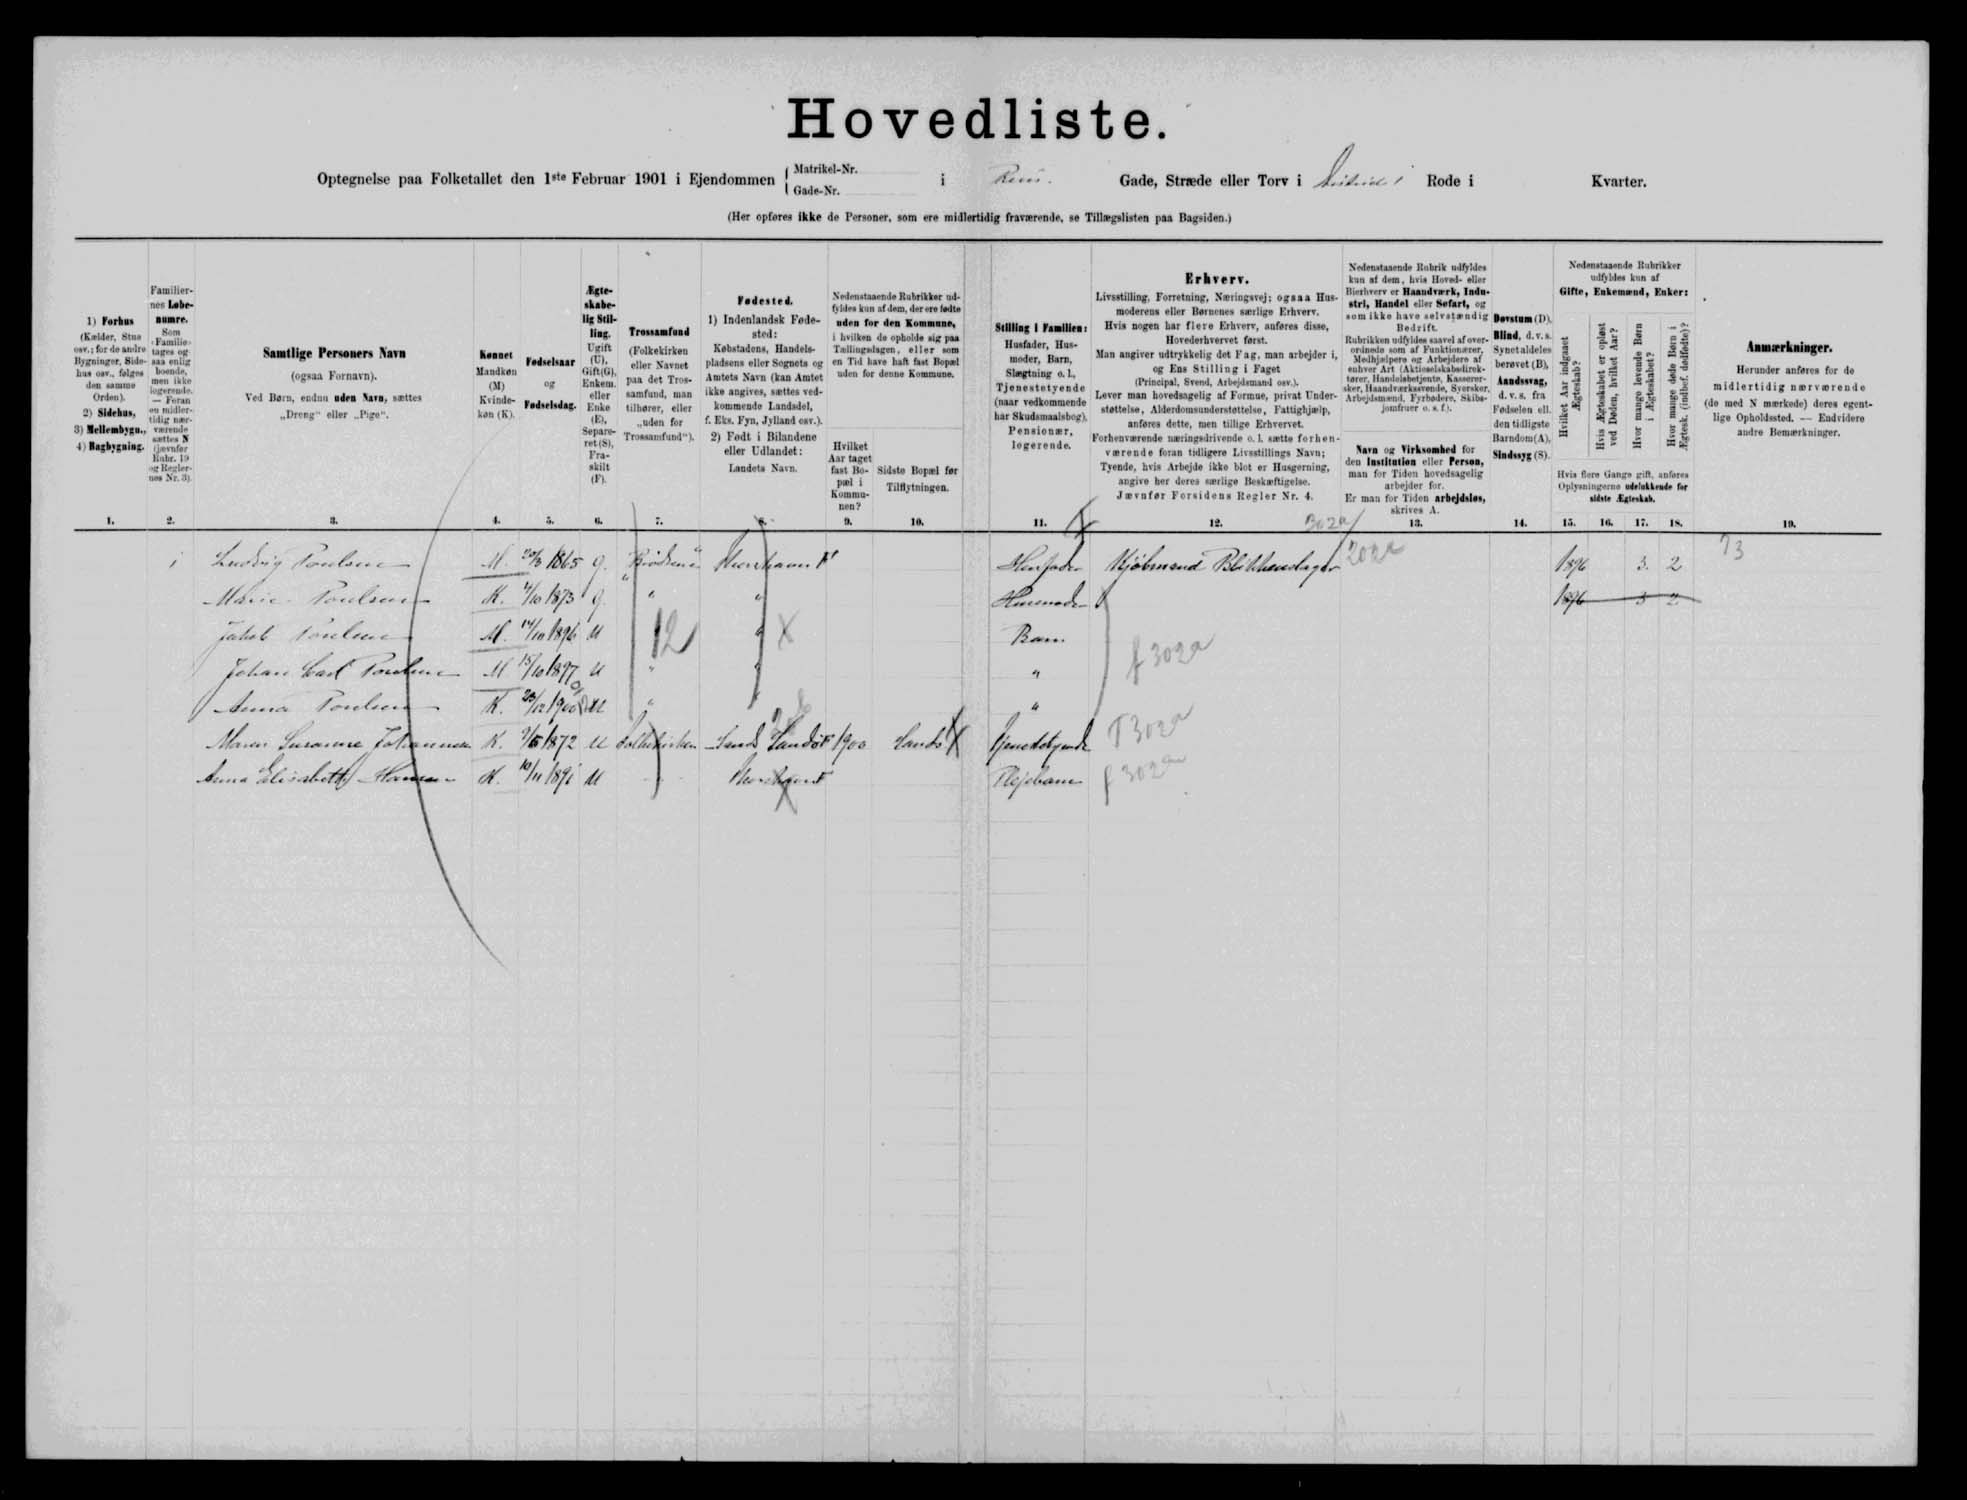 Hovedliste.
Optegnelse paa Folketallet den 1ste Februar 1901 i Ejendommen { Matrikel-Nr. Gade-Nr. i Gade, Stræde eller Torv i Distrikt 1 Rode i Kvarter.
(Her opføres ikke de Personer, som ere midlertidig fraværende, se Tillægslisten paa Bagsiden.)
1) Forhus (Kælder, Stue osv.; for de andre Bygninger, Sidehus osv., følges den samme Orden). 2) Sidehus, 3) Mellembygn., 4) Bagbygning.
Familiernes Løbenumre. Som Familie tages ogsaa enlig boende, men ikke logerende. — Foran en midlertidig nærværende sættes N (jævnfør Rubr. 19 og Reglernes Nr. 3).
Samtlige Personers Navn (ogsaa Fornavn). Ved Børn, endnu uden Navn, sættes „Dreng“ eller „Pige“.
Kønnet Mandkøn (M) Kvindekøn (K).
Fødselsaar og Fødselsdag.
Ægteskabelig Stilling. Ugift (U), Gift(G), Enkem. eller Enke (E), Separeret (S), Fraskilt (F).
Trossamfund (Folkekirken eller Navnet paa det Trossamfund, man tilhører, eller „uden for Trossamfund“).
Fødested. 1) Indenlandsk Fødested: Købstadens, Handelspladsens eller Sognets og Amtets Navn (kan Amtet ikke angives, sættes vedkommende Landsdel, f. Eks. Fyn, Jylland osv.). 2) Født i Bilandene eller Udlandet: Landets Navn.
Nedenstaaende Rubrikker udfyldes kun af dem, der ere fødte uden for den Kommune, i hvilken de opholde sig paa Tællingsdagen, eller som en Tid have haft fast Bopæl uden for denne Kommune.
Hvilket Aar taget fast Bopæl i Kommunen?
Sidste Bopæl før Tilflytningen.
Stilling i Familien: Husfader, Husmoder, Barn, Slægtning o. l., Tjenestetyende (naar vedkommende har Skudsmaalsbog), Pensionær, logerende.
Erhverv.
Livsstilling, Forretning, Næringsvej; ogsaa Husmoderens eller Børnenes særlige Erhverv.
Hvis nogen har flere Erhverv, anføres disse, Hovederhvervet først.
Man angiver udtrykkelig det Fag, man arbejder i, og Ens Stilling i Faget (Principal, Svend, Arbejdsmand osv.).
Lever man hovedsagelig af Formue, privat Understøttelse, Alderdomsunderstøttelse, Fattighjælp, anføres dette, men tillige Erhvervet.
Forhenværende næringsdrivende o. l. sætte forhenværende foran tidligere Livsstillings Navn; Tyende, hvis Arbejde ikke blot er Husgerning, angive her deres særlige Beskæftigelse.
Jævnfør Forsidens Regler Nr. 4.
Nedenstaaende Rubrik udfyldes kun af dem, hvis Hoved- eller Bierhverv er Haandværk, Industri, Handel eller Søfart, og som ikke have selvstændig Bedrift.
Rubrikken udfyldes saavel af overordnede som af Funktionærer, Medhjælpere og Arbejdere af enhver Art (Aktieselskabsdirektører, Handelsbetjente, Kasserersker, Haandværkssvende, Syersker, Arbejdsmænd, Fyrbødere, Skibsjomfruer o. s. f.).
Navn og Virksomhed for den Institution eller Person, man for Tiden hovedsagelig arbejder for.
Er man for Tiden arbejdsløs, skrives A.
Døvstum (D), Blind, d. v. s. Synet aldeles berøvet (B), Aandssvag, d. v. s. fra Fødselen ell. den tidligste Barndom (A), Sindssyg (S).
Nedenstaaende Rubrikker udfyldes kun af Gifte, Enkemænd, Enker:
Hvilket Aar indgaaet Ægteskab?
Hvis Ægteskabet er opløst ved Døden, hvilket Aar?
Hvor mange levende Børn i Ægteskabet?
Hvor mange døde Børn i Ægtesk. (indbef. dødfødte)?
Hvis flere Gange gift, anføres Oplysningerne udelukkende for sidste Ægteskab.
Anmærkninger.
Herunder anføres for de midlertidig nærværende (de med N mærkede) deres egentlige Opholdssted. — Endvidere andre Bemærkninger.
1. 2. 3. 4. 5. 6. 7. 8. 9. 10. 11. 12. 13. 14. 15. 16. 17. 18. 19.
302a
1 Ludvig Poulsen M. 1865 g. Thorshavn F Husfader Kjøbmand Blikkenslager 202a 1896 3. 2 73
Marie Poulsen K. 1873 g. " " Husmoder 1896 3 2
Jakob Poulsen M. 14/10 1896 U 12 " Barn
Johan Carl Poulsen M 15/10 1897 U " " " f 302a
Anna Poulsen K. 1900 U " " "
Maren Susanne Johannesen K. 1872 U Folkekirken Sands Sandø F 1900 Sands Tjenestetyende T 302a
Anna Elisabeth Hansen K. 10/11 1891 U Thorshavn F Plejebarn f 302a